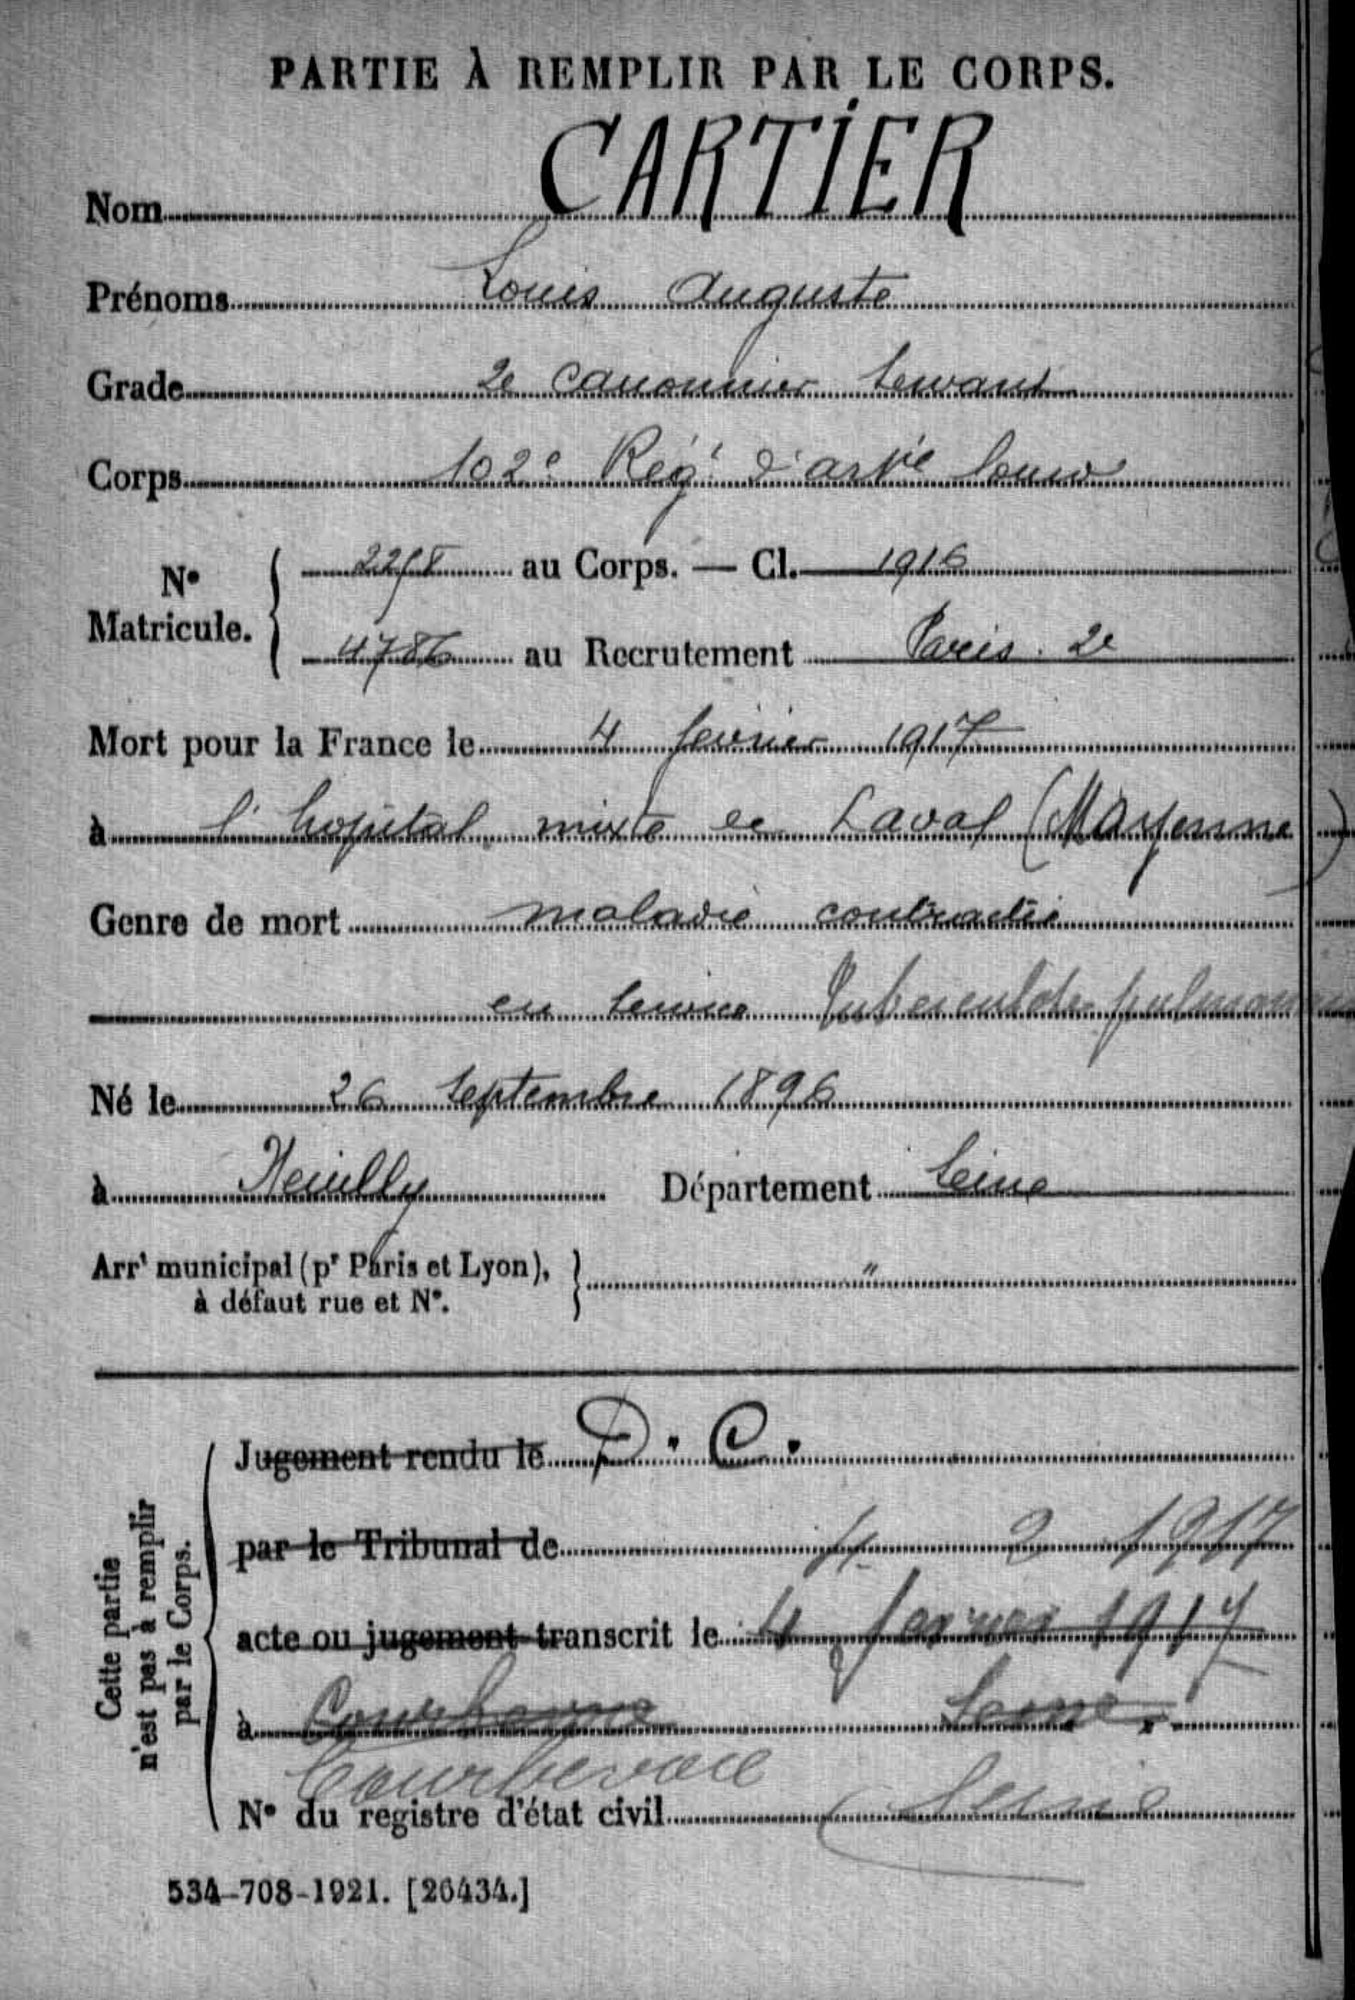 PARTIE À REMPLIR PAR LE CORPS.
Nom CARTIER
Prénoms Louis Auguste
Grade 2e canonnier servant
Corps 102e Régt d'artie lourde
No Matricule. au Corps. — Cl. 1916
4786 au Recrutement Paris. 2e
Mort pour la France le 4 février 1917
à l'hôpital mixte de Laval (Mayenne)
Genre de mort maladie contractée
en service Tuberculose pulmonaire
Né le 26 Septembre 1896
à Neuilly Département Seine
Arrt municipal (pr Paris et Lyon),
à défaut rue et No. "
Cette partie
n'est pas à remplir
par le Corps.
Jugement rendu le D. C.
par le Tribunal de 4 2 1917
acte ou jugement transcrit le 4 février 1917
à Courbevoie Seine.
Courbevoie
No du registre d'état civil Seine
534-708-1921. [26434.]